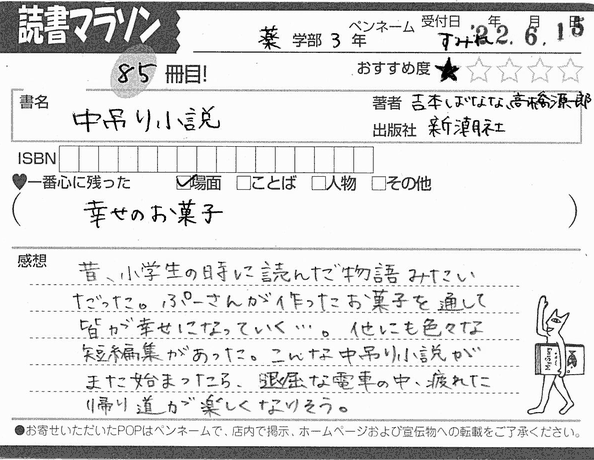 読書マラソン
薬 学部 3 年 ペンネーム すみね 受付日 年 月 日 '22.6.15
85 冊目! おすすめ度 ★☆☆☆☆
書名 中吊り小説
著者 吉本ばなな、高橋源一郎
出版社 新潮社
ISBN
♥一番心に残った ☑場面 □ことば □人物 □その他
( 幸せのお菓子 )
感想
昔、小学生の時に読んだ物語みたい
だった。ぷーさんが作ったお菓子を通して
皆が幸せになっていく…。他にも色々な
短編集があった。こんな中吊り小説が
また始まったら、退屈な電車の中、疲れた
帰り道が楽しくなりそう。
●お寄せいただいたPOPはペンネームで、店内で掲示、ホームページおよび宣伝物への転載をご了承ください。